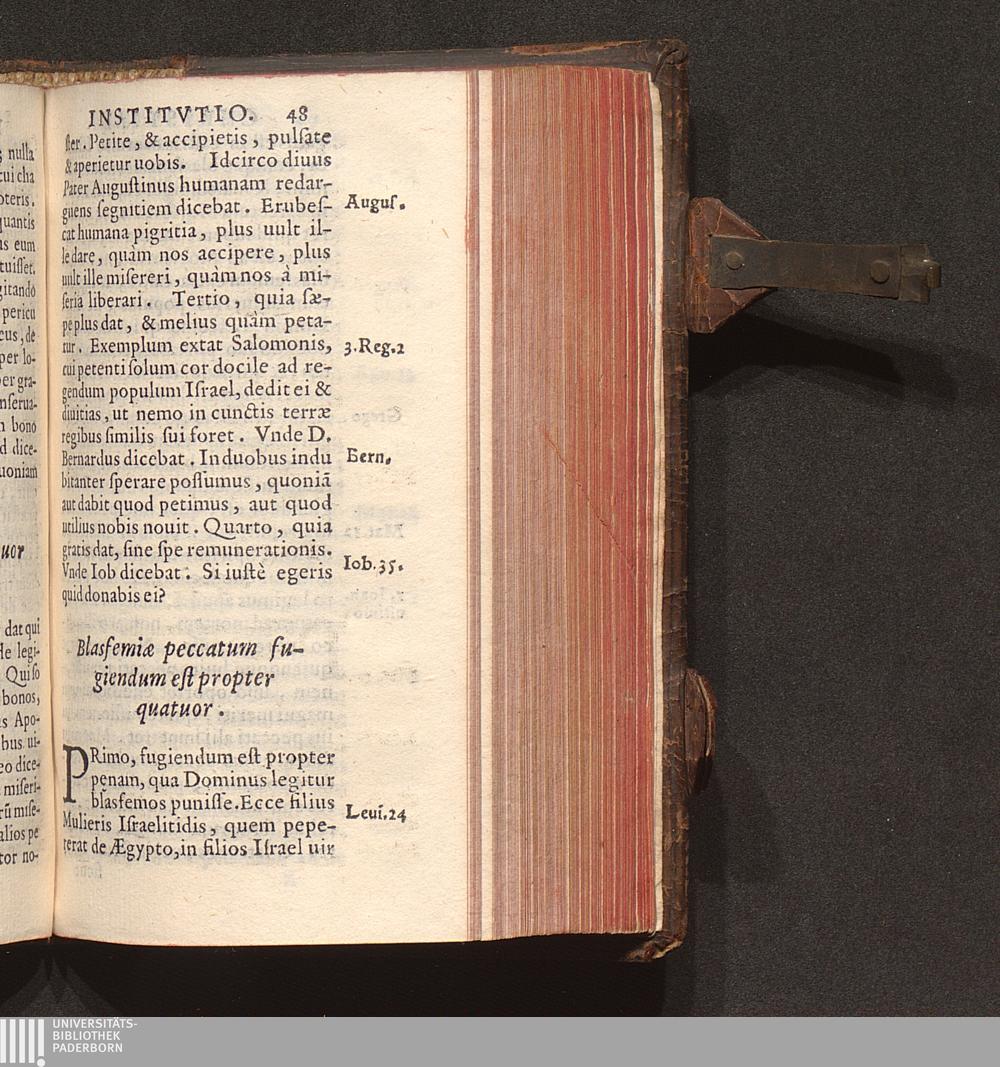 nulla
tui cha
oteris.
quantis
us eum
tuisset.
gitando
pericu
cus, de
per lo-
er gra-
nserua-
n bono
d dice-
uoniam
uor
dat qui
le legi-
Qui so
bonos,
as Apo-
bus ui-
eo dice-
miseri-
rũ mise-
alios pe
tor no-
INSTITVTIO. 48
ster. Petite, & accipietis, pulsate
& aperietur uobis. Idcirco diuus
Pater Augustinus humanam redar-
guens segnitiem dicebat. Erubes-
Augus.
cat humana pigritia, plus uult il-
le dare, quàm nos accipere, plus
uult ille misereri, quàm nos à mi-
seria liberari. Tertio, quia sæ-
pe plus dat, & melius quàm peta-
tur. Exemplum extat Salomonis,
3.Reg.2
cui petenti solum cor docile ad re-
gendum populum Israel, dedit ei &
diuitias, ut nemo in cunctis terræ
regibus similis sui foret. Vnde D.
Bernardus dicebat. In duobus indu
Bern.
bitanter sperare possumus, quoniã
aut dabit quod petimus, aut quod
utilius nobis nouit. Quarto, quia
gratis dat, sine spe remunerationis.
Vnde Iob dicebat. Si iustè egeris
Iob.35.
quid donabis ei?
Blasfemiæ peccatum fu-
giendum est propter
quatuor.
PRimo, fugiendum est propter
pęnam, qua Dominus legitur
blasfemos punisse. Ecce filius
Leui.24
Mulieris Israelitidis, quem pepe-
rerat de Ægypto, in filios Israel uir
UNIVERSITÄTS-
BIBLIOTHEK
PADERBORN